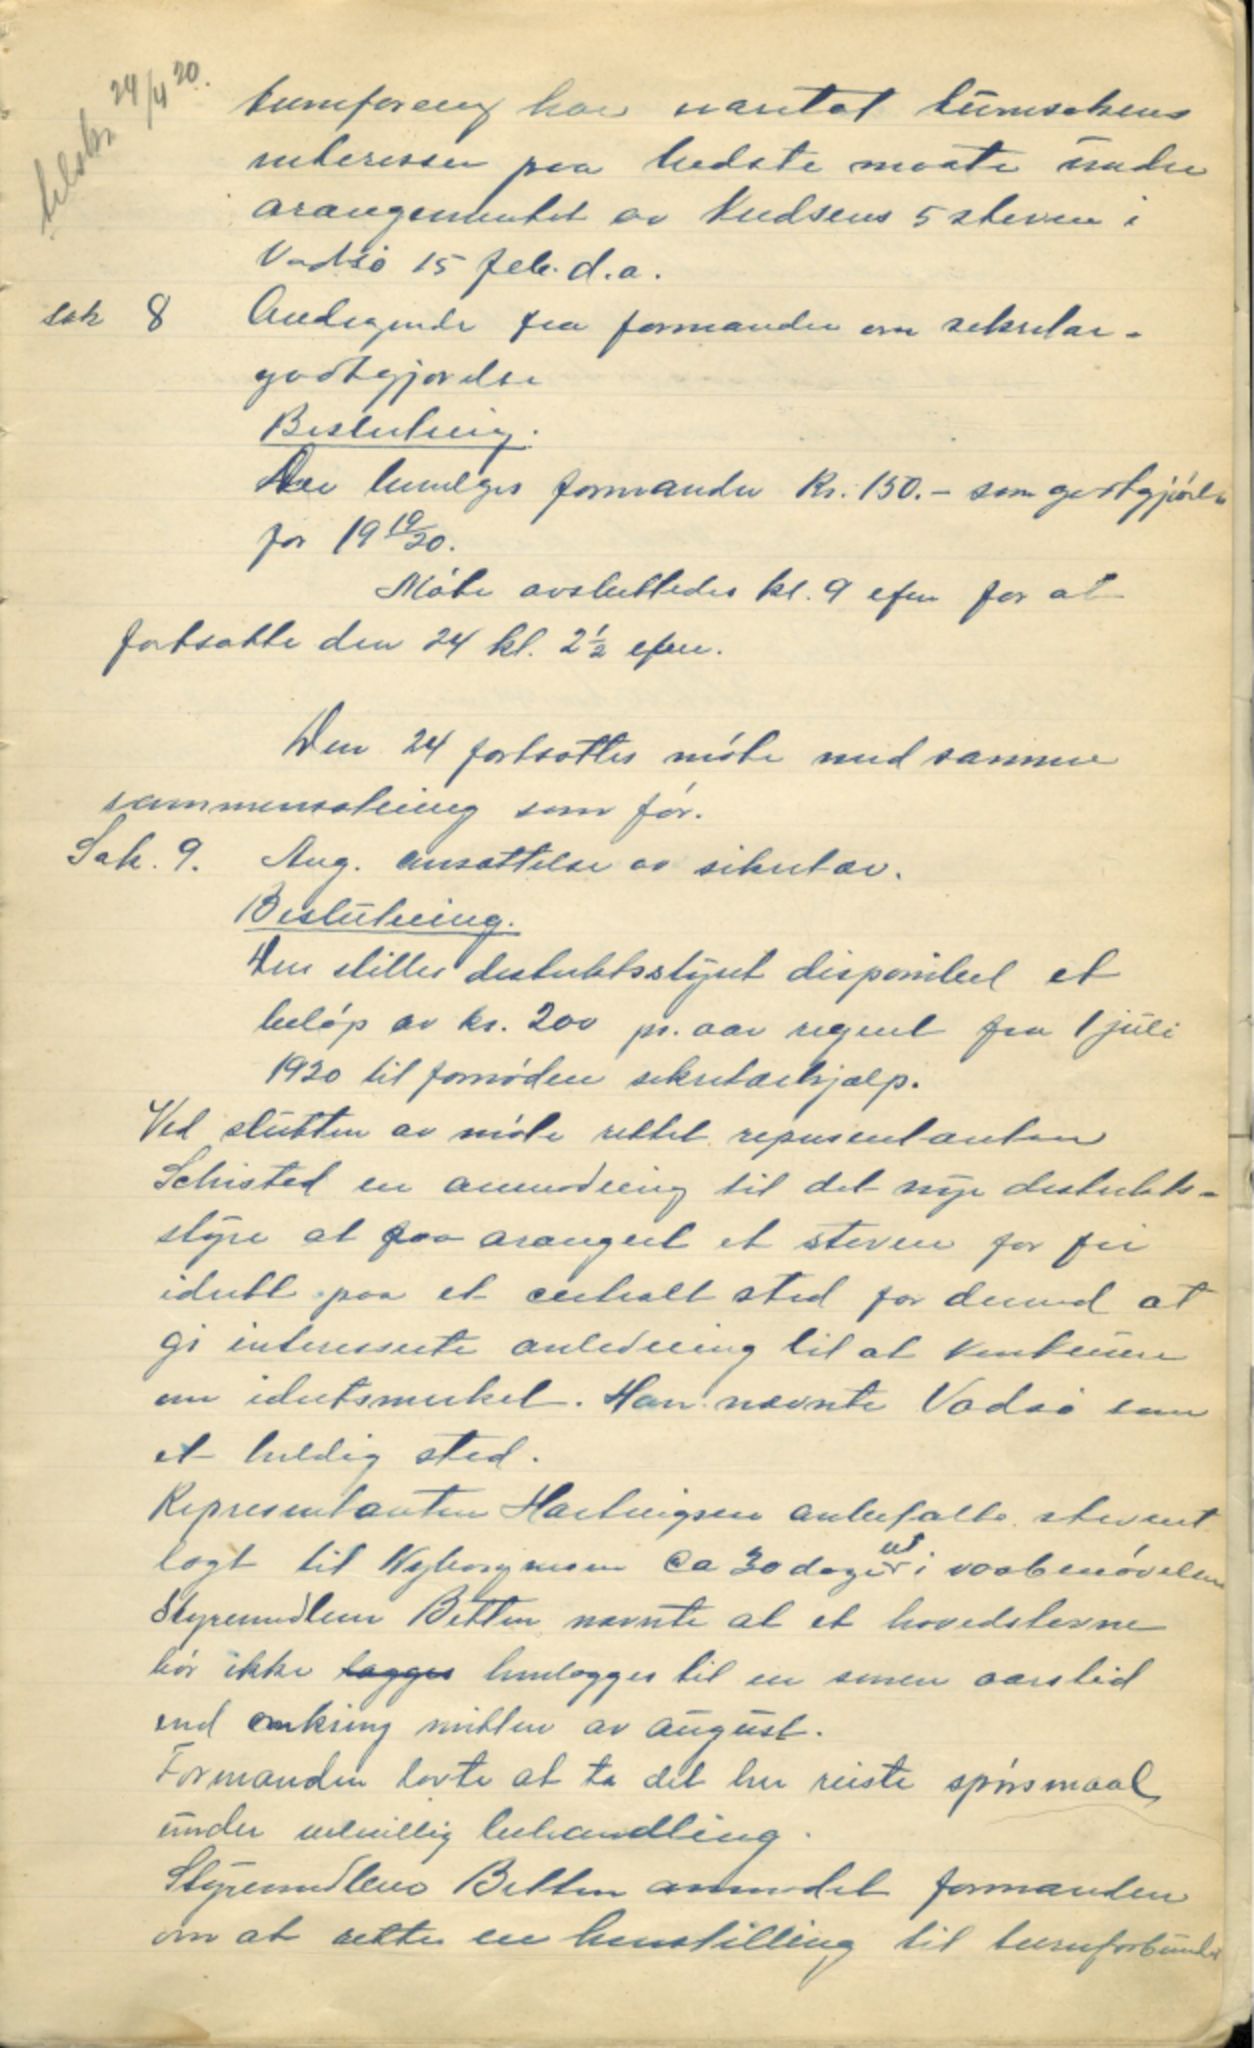 tilskr. 24/4 20.
turnforening har varetat turnsakens
interesser paa bedste maate under
arangementet av Knudsens 5 stevne i
Vadsö 15 feb. d.a.
sak 8 Andragende fra formanden om sekretær-
godtgjørelse
Beslutning.
Der bevilges formanden kr. 150.- som godtgjörelse
for 19 19/20.
Möte avsluttedes kl. 9 efm for at
fortsætte den 24 kl. 2 1/2 efm.
Den 24 fortsattes möte med samme
sammensætning som för.
Sak. 9. Ang. ansættelse av sekretær.
Beslutning.
Der stilles distriktsstyret disponibel et
belöp av kr. 200 pr. aar regnet fra 1 juli
1920 til fornöden sekretærhjælp.
Ved slutten av möte rettet representanten
Schisted en anmodning til det nye distrikts-
styre at faa arangert et stevne for fri
idrett paa et centralt sted for derved at
gi interesserte anledning til at konkurere
om idretsmerket. Han nævnte Vadsö som
et heldig sted.
Representanten Hartvigsen anbefalte stevnet
lagt til Nyborgmoen ca 30 dager ut i vaabenövelsen
Styremedlem Betten nævnte at et hovedstevne
bör ikke lægges henlægges til en senere aarstid
end omkring mitten av august.
Formanden lovte at ta det her reiste spörsmaal
under velvillig behandling.
Styremedlem Betten anmodet formanden
om at rette en henstilling til turnforbundet